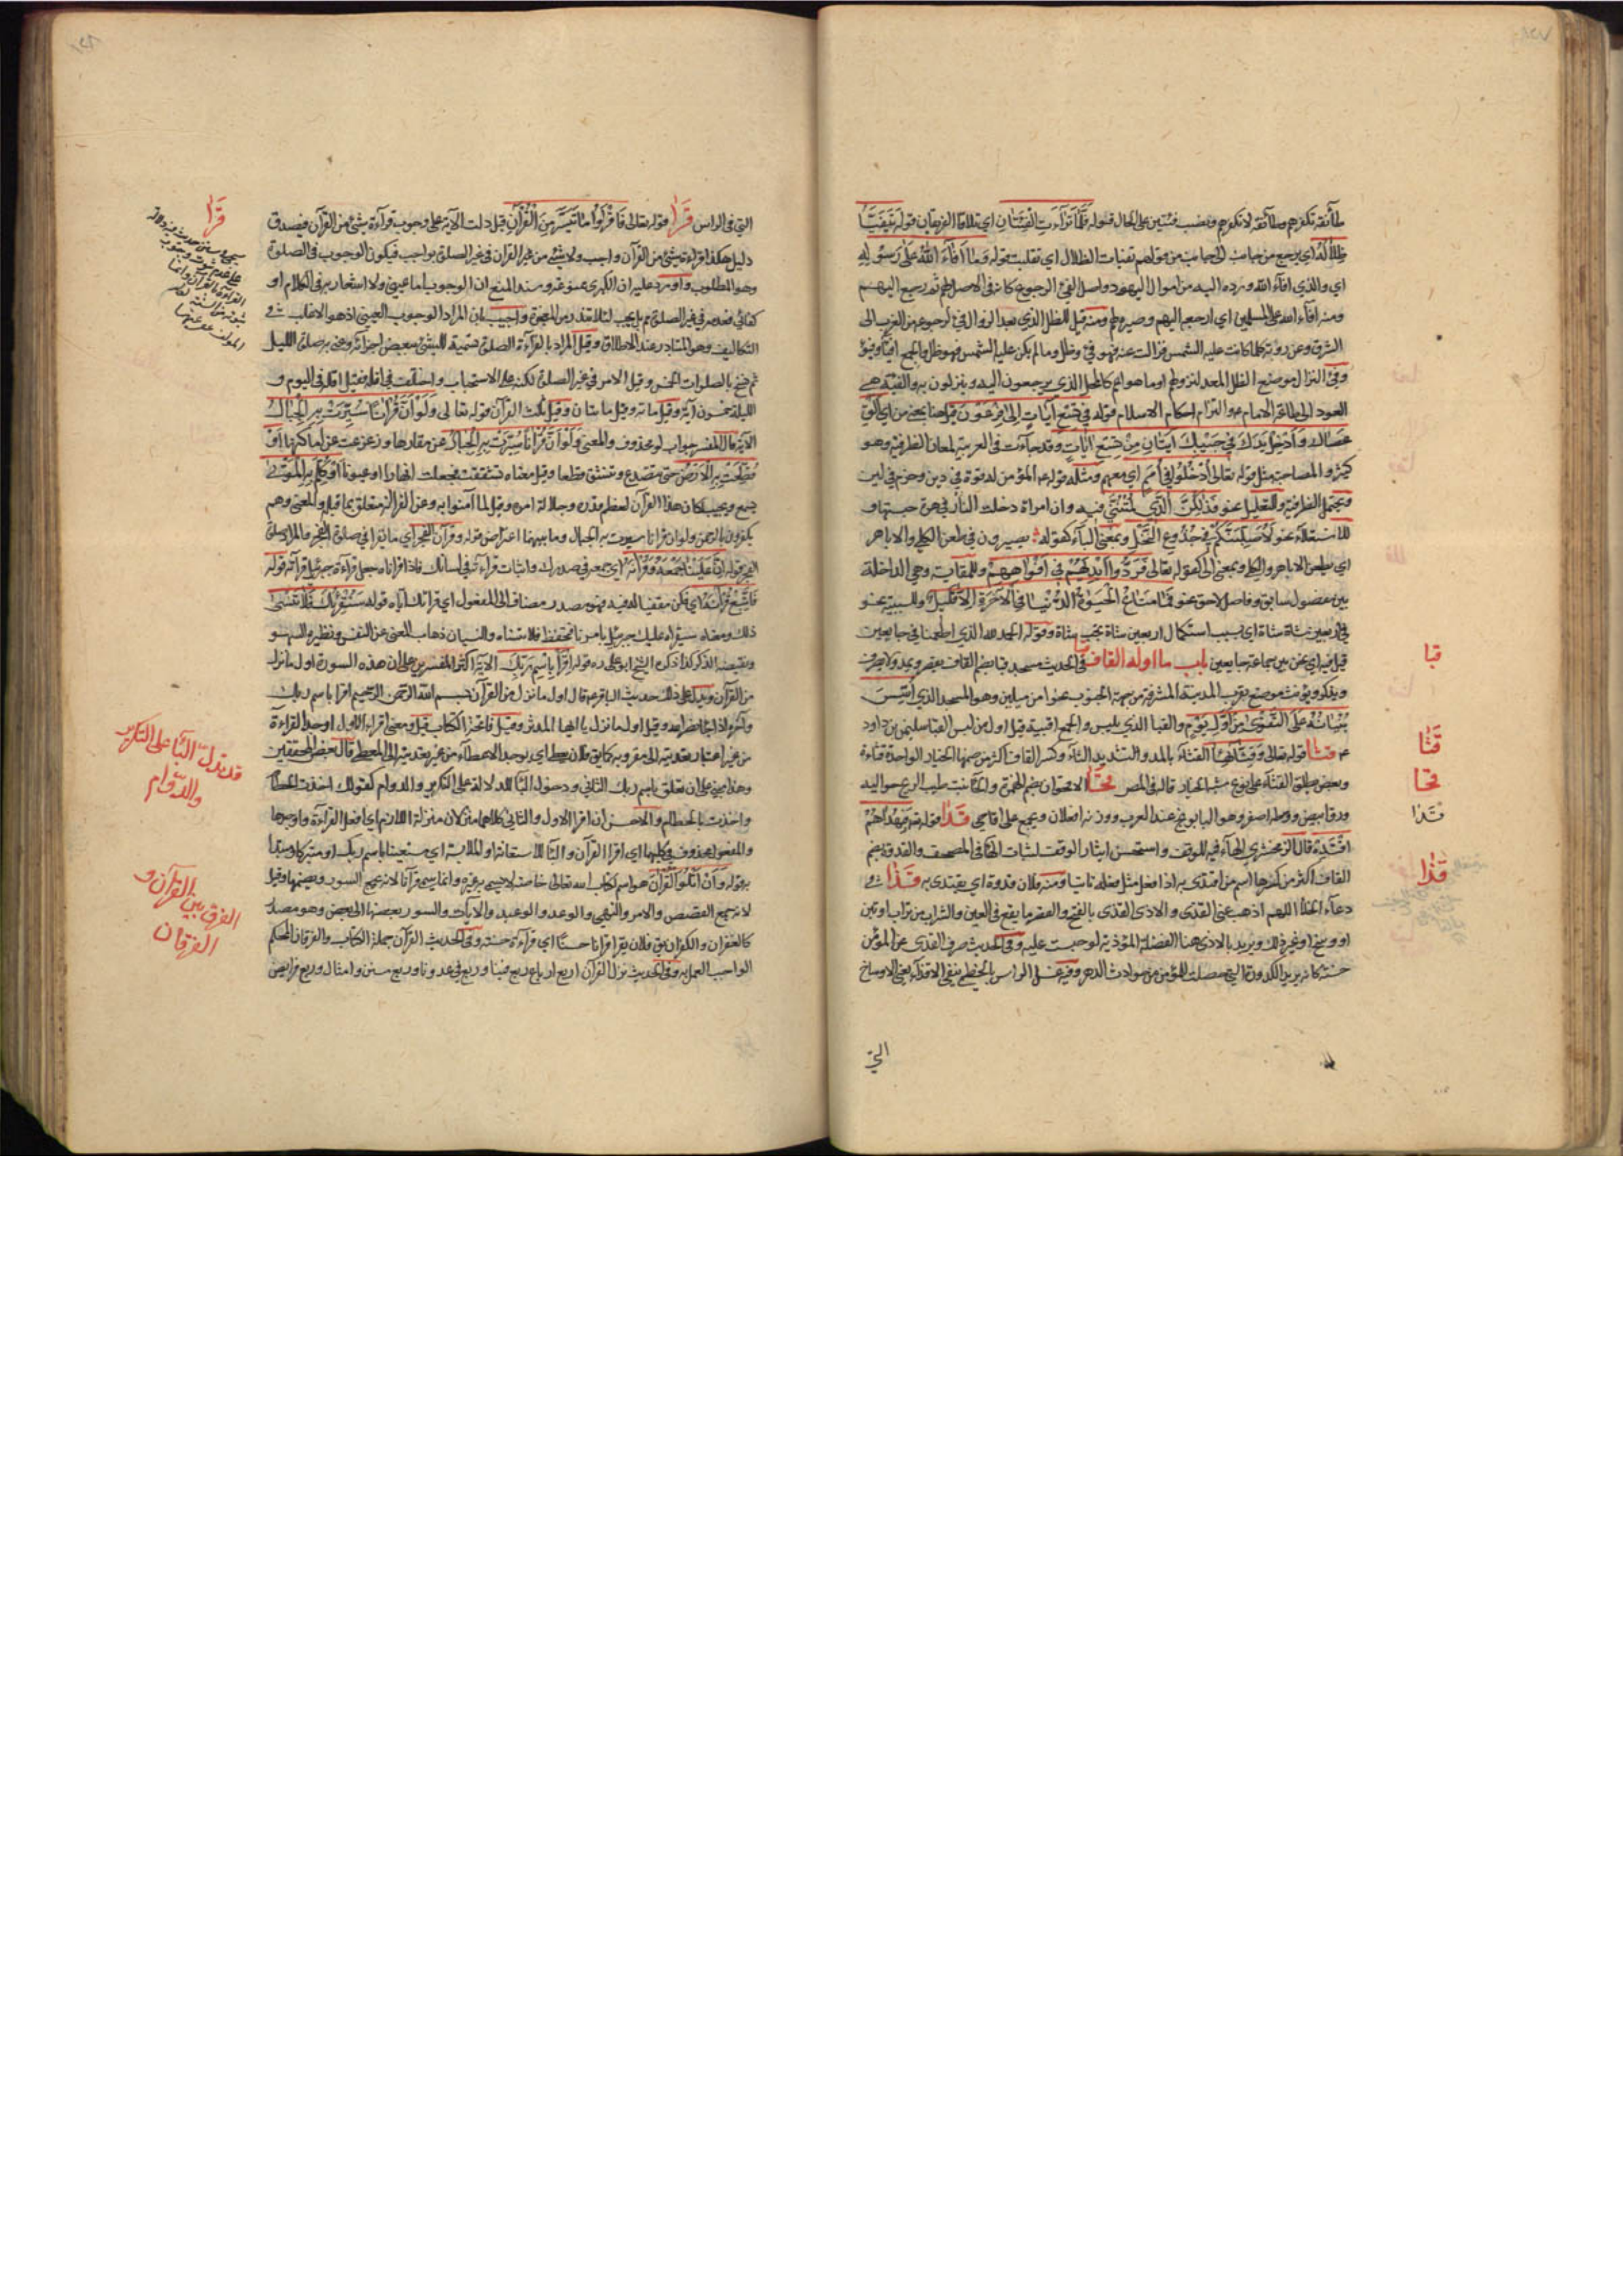 طائفة تكفرهم وطائفة لا تكفرهم ونصب فئتين على الحال قوله فَلَمَّا تَرَآءَتِ الْفِئَتَانِ اي تلاقا الفريقان قوله يَتَفَيَّأُ
ظِلَالُهُ اي يرجع من جانب الى جانب من قولهم تفيات الظلال اي تقلبت قوله وَمَا اَفَآءَ اللهُ عَلٰى رَسُولِهِ
اي والذي افآء الله ورده اليه من اموال اليهود واصل الفئ الرجوع كانه في الاصل لهم ثم رجع اليهم
ومنه افآء الله على المسلمين اي ارجعه اليهم وصيره لهم ومنه قيل للظل الذي بعد الزوال فئ لرجوعه من الغرب الى
الشرق وعن روبة كلما كانت عليه الشمس فزالت عنه فهو فئ وظل وما لم يكن عليه الشمس فهو ظل والجمع افياء وفيؤ
العود الى طاعة الامام والتزام احكام الاسلام قوله فِي تِسْعِ آيَاتٍ اِلٰى فِرْعَوْنَ قيل هنا بمعنى من اي اَلْقِ
عَصَاكَ وَاَدْخِلْ يَدَكَ فِي جَيْبِكَ ايتان مِنْ تِسْعِ آيَاتٍ وقد جاءت في العربية لمعان الظرفية وهو
كثير والمصاحبة مثل قوله تعالى اُدْخُلُوا فِي اُمَمٍ اي معهم ومثله قوله المؤمن له قوة في دين وحزم في لين
ويحتمل الظرفية وللتعليل نحو فَذٰلِكُنَّ الَّذِي لُمْتُنَّنِي فِيهِ وان امراة دخلت النار في هرة حبستها و
للاستعلاء نحو لَاُصَلِّبَنَّكُمْ فِي جُذُوعِ النَّخْلِ وبمعنى البآء كقوله بصيرون في طعن الكلى والاباهر
اي بطعن الاباهر والكلى وبمعنى الى كقوله تعالى فَرَدُّوا اَيْدِيَهُمْ فِي اَفْوَاهِهِمْ وللمقايسة وهي الداخلة
بين مفضول سابق وفاضل لاحق نحو فَمَا مَتَاعُ الْحَيٰوةِ الدُّنْيَا فِي الْآخِرَةِ اِلَّا قَلِيلٌ وللسببية نحو
في اربعين شاة شاة اي بسبب استكمال اربعين شاة تجب شاة وقوله الحمد لله الذي اطعمنا في جايعين
قيل فيه اي نحن بين جماعة جايعين باب ما اوله القاف قبا في الحديث مسجد قبا بضم القاف يقصر ويمد ولا يصرف
ويذكر ويؤنث موضع بقرب المدينة المشرفة من جهة الجنوب نحوا من ميلين وهو المسجد الذي اُسِّسَ
بُنْيَانُهُ عَلَى التَّقْوٰى مِنْ اَوَّلِ يَوْمٍ والقبا الذي يلبس والجمع اقبية قيل اول من لبس القبا سليمن بن داود
ع قثا قوله تعالى وَقِثَّائِهَا القثاء بالمد والتشديد الثآء وكسر القاف اكثر من ضمها الخيار الواحدة قثاءة
وبعض يطلق القثاء على نوع يشبه الخيار قاله في المصر قحا الاقحوان بضم الهمزة والحآء نبت طيب الريح حواليه
ورق ابيض ووسطه اصفر وهو البابونج عند العرب ووزنه افعلان ويجمع على اقاحي قدا قوله فَبِهُدٰيهُمُ
اقْتَدِهْ قال الزمخشري الهآء فيه للوقف واستحسن ايثار الوقف لثبات الهآء في المصحف والقدوة بضم
القاف اكثر من كسرها اسم من اقتدى به اذا فعل مثل فعله تاسيا ومنه فلان قدوة اي يقتدى به قذا في
دعآء الخلا اللهم اذهب عني القذى والاذى القذى بالفتح والقصر ما يقع في العين والشراب من تراب او تبن
او وسخ او غير ذلك ويريد بالاذى هنا الفضلة المؤذية لو حبست عليه وفي الحديث صرف القذى عن المؤمن
حسنة كانه يريد الكدورة التي حصلت للمؤمن من حوادث الدهر وفيه غسل الراس بالخطمي ينفي الاقذآء يعني الاوساخ
التي
قبا
قثا
قحا
قدا
قذا
التي في الراس قرا قوله تعالى فَاقْرَؤُا مَا تَيَسَّرَ مِنَ الْقُرْآنِ قيل دلت الآية على وجوب قرآءة شئ من القرآن فيصدق
دليل هكذا قراءة شئ من القرآن واجب ولا شئ من غير القرآن في غير الصلوة بواجب فيكون الوجوب في الصلوة
وهو المطلوب واورد عليه ان الكبرى ممنوعة وسند المنع ان الوجوب اما عيني ولا اشعار به في الكلام او
كفائي فعدمه في غير الصلوة مم بل يجب لئلا تندرس المعجزة واجيب بان المراد الوجوب العيني اذ هو الاغلب في
التكاليف وهو المتبادر عند الاطلاق وقيل المراد بالقرآءة الصلوة تسمية للشئ ببعض اجزائه وعنى به صلوة الليل
ثم نسخ بالصلوات الخمس وقيل الامر في غير الصلوة لكنه على الاستحباب واختلف في اقله فقيل اقله في اليوم و
الليلة خمسون آية وقيل مائة وقيل مائتان وقيل ثلث القرآن قوله تعالى وَلَوْ اَنَّ قُرْآنًا سُيِّرَتْ بِهِ الْجِبَالُ
الآية قال المفسر جواب لو محذوف والمعنى وَلَوْ اَنَّ قُرْآنًا سُيِّرَتْ بِهِ الْجِبَالُ عن مقارها وزعزعت عن اماكنها اَوْ
قُطِّعَتْ بِهِ الْاَرْضُ حتى تتصدع وتتشقق قطعا وقيل معناه شققت فجعلت انهارا وعيونا اَوْ كُلِّمَ بِهِ الْمَوْتٰى
تسمع وتجيب لكان هذا القرآن لعظم قدره وجلالة امره وقيل لما آمنوا به وعن الفرا انه متعلق بما قبله والمعنى وهم
يكفرون بالرحمن ولو ان قرآنا سيرت به الجبال وما بينهما اعتراض قوله وقرآن الفجر اي ما يقرا في صلوة الفجر والمراد صلوة
الفجر قوله اِنَّ عَلَيْنَا جَمْعَهُ وَقُرْآنَهُ اي جمعه في صدرك واثبات قرآءته في لسانك فاذا قراناه جعل قرآءة جبرئيل قرآءته قوله
فَاتَّبِعْ قُرْآنَهُ اي فكن مقفيا له فيه فهو مصدر مضاف الى المفعول اي قرآتك اياه قوله سَنُقْرِئُكَ فَلَا تَنْسٰى
ذلك ومعناه سيقراء عليك جبرئيل بامرنا فتحفظ فلا تنساه والنسيان ذهاب المعنى عن النفس ونظيره السهو
ونقيضه الذكر كذا ذكره الشيخ ابو علي ره قوله اِقْرَأْ بِاسْمِ رَبِّكَ الآية اكثر المفسرين على ان هذه السورة اول ما نزل
من القرآن ويدل على ذلك حديث الباقر ع قال اول ما نزل من القرآن بسم الله الرحمن الرحيم اقرا باسم ربك
وآخره اذا جاء نصر الله وقيل اول ما نزل يا ايها المدثر وقيل فاتحة الكتاب قيل ومعنى اقراء الاول اوجد القراءة
من غير اعتبار تعديته الى مقروبه كما يق فلان يعطي اي يوجد الاعطآء من غير تعديته الى المعطى قال بعض المحققين
وهذا مبني على ان تعلق باسم ربك الثاني ودخول البآء للدلالة على التكرير والدوام كقولك اخذت الخطام
واخذت بالخطام والاحسن ان اقرا الاول والثاني كلاهما منزلان منزلة اللازم اي افعل القرآءة واوجدها
والمفعول محذوف في كليهما اي اقرا القرآن والبآء للاستعانة او الملابسة اي مستعينا باسم ربك او متبركا ومبتدا
به قوله وَاَنْ اَتْلُوَ الْقُرْآنَ هو اسم لكتاب الله تعالى خاصة لا يسمى به غيره وانما سمي قرآنا لانه يجمع السور ويضمها وقيل
لانه جمع القصص والامر والنهي والوعد والوعيد والآيات والسور بعضها الى بعض وهو مصدر
كالغفران والكفران يق فلان يقرا قرآنا حسنا اي قرآءة حسنة وفي الحديث القرآن جملة الكتاب والفرقان المحكم
الواجب العمل به وفي الحديث نزل القرآن اربع ارباع ربع فينا وربع في عدونا وربع سنن وامثال وربع فرائض
قرا
قد تدل البآ على التكرير
والدوام
الفرق بين القرآن و
الفرقان